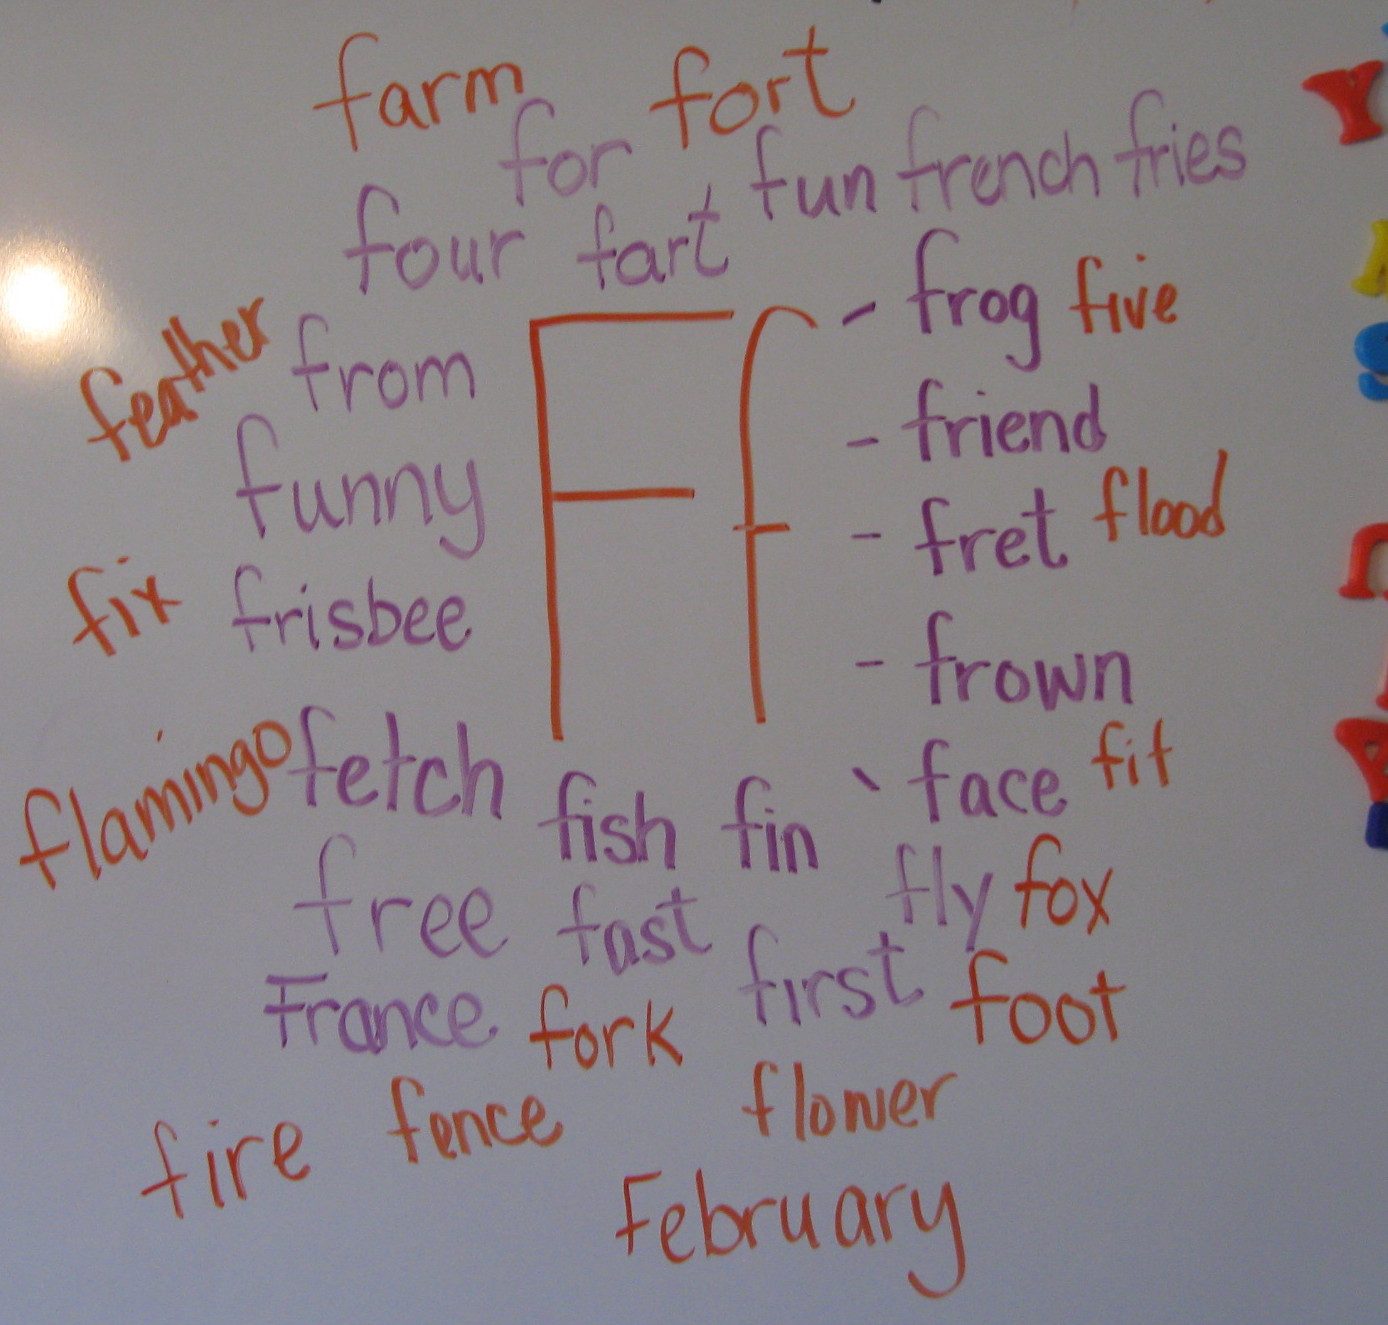 farm fort
for fun french fries
four fart
feather from Ff - frog five
funny - friend
fix frisbee - fret flood
- frown
flamingo fetch fish fin ` face fit
free fast fly fox
France fork first foot
fire fence flower
February
Y